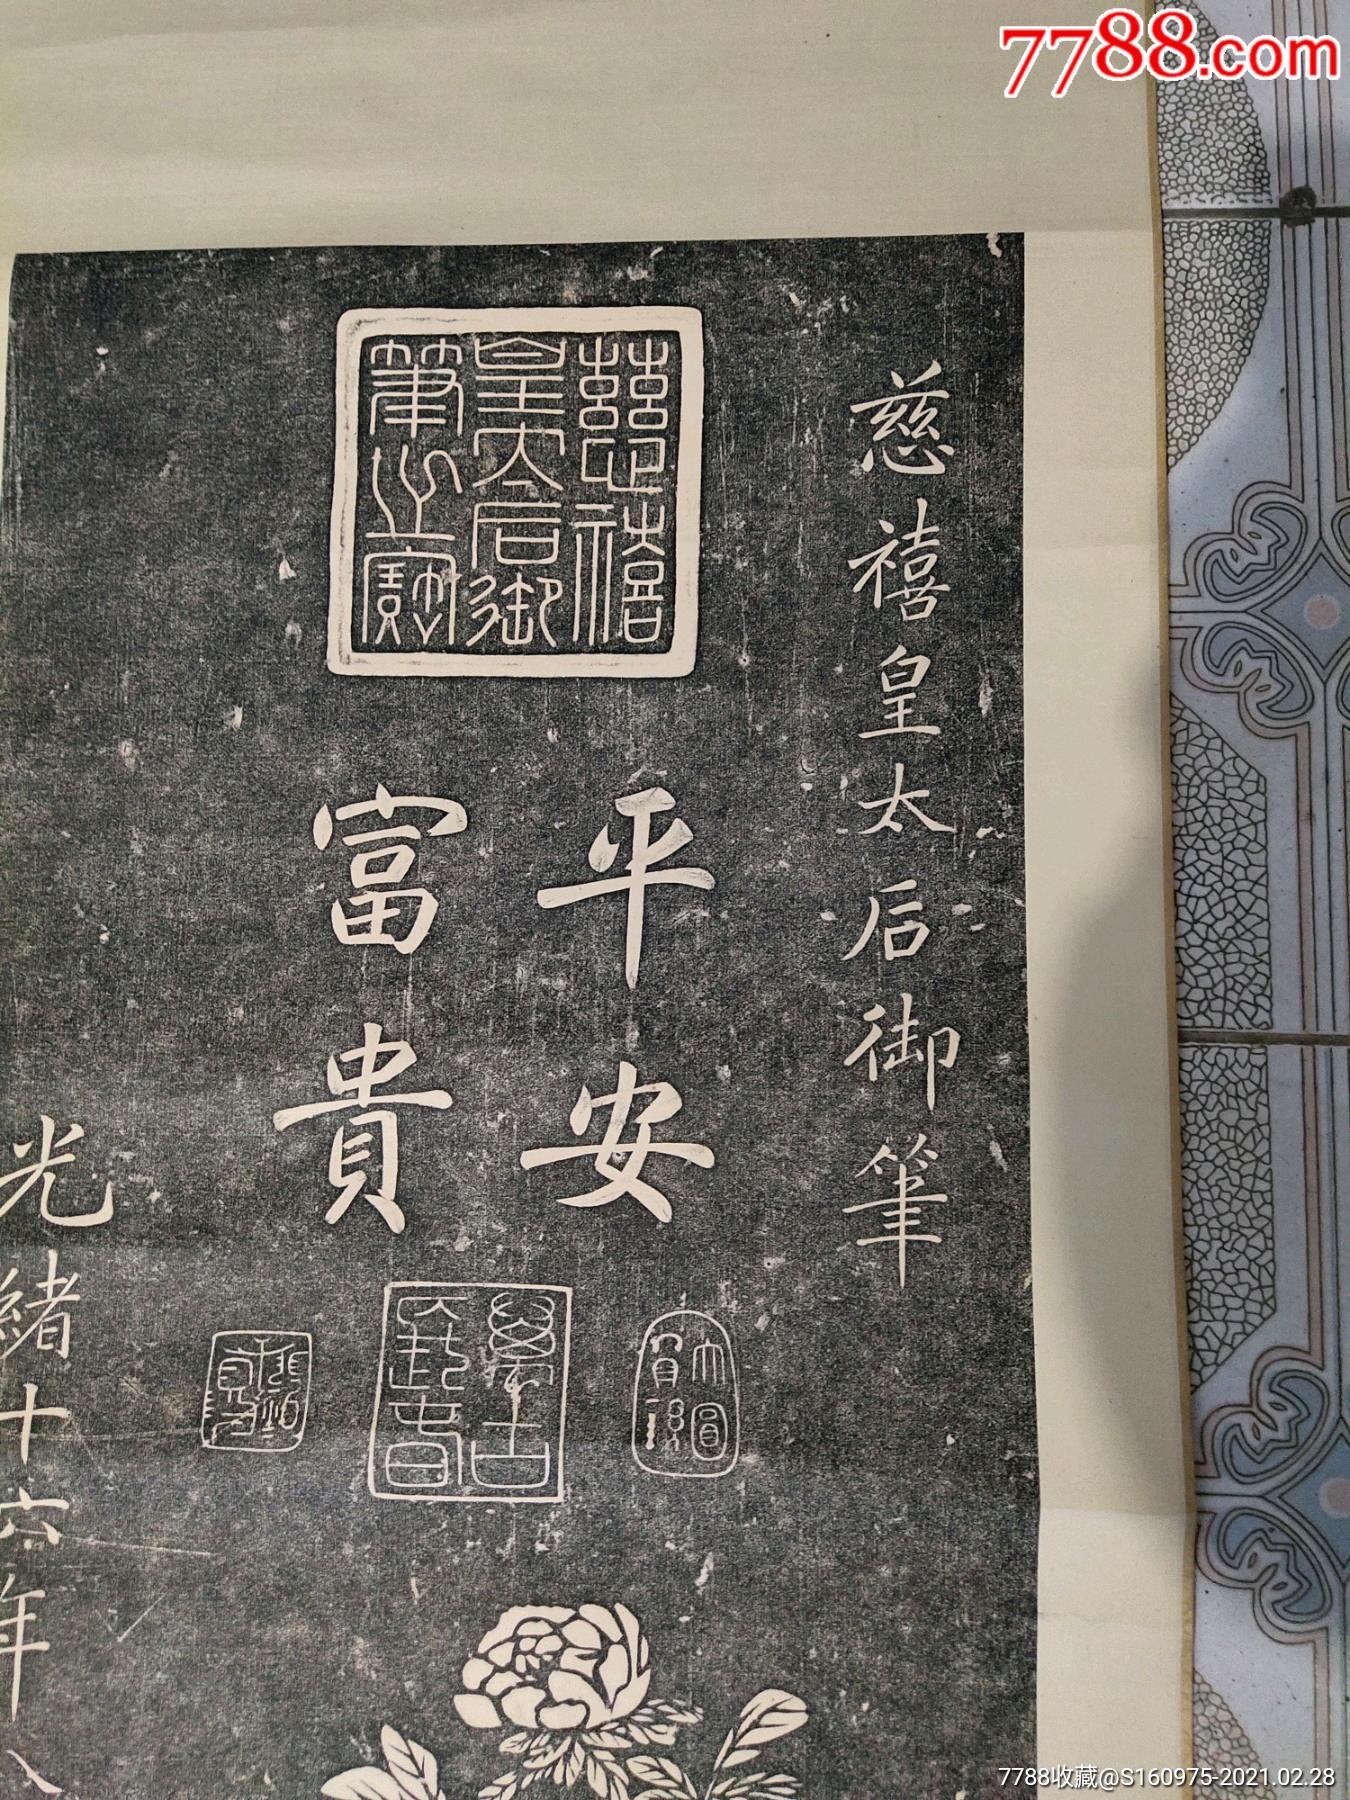 7788.com
慈禧皇太后御筆
慈禧
皇太后御
筆之寶
平安
富貴
大圓
寶鏡
光緒十六年八
7788收藏@S160975-2021.02.28